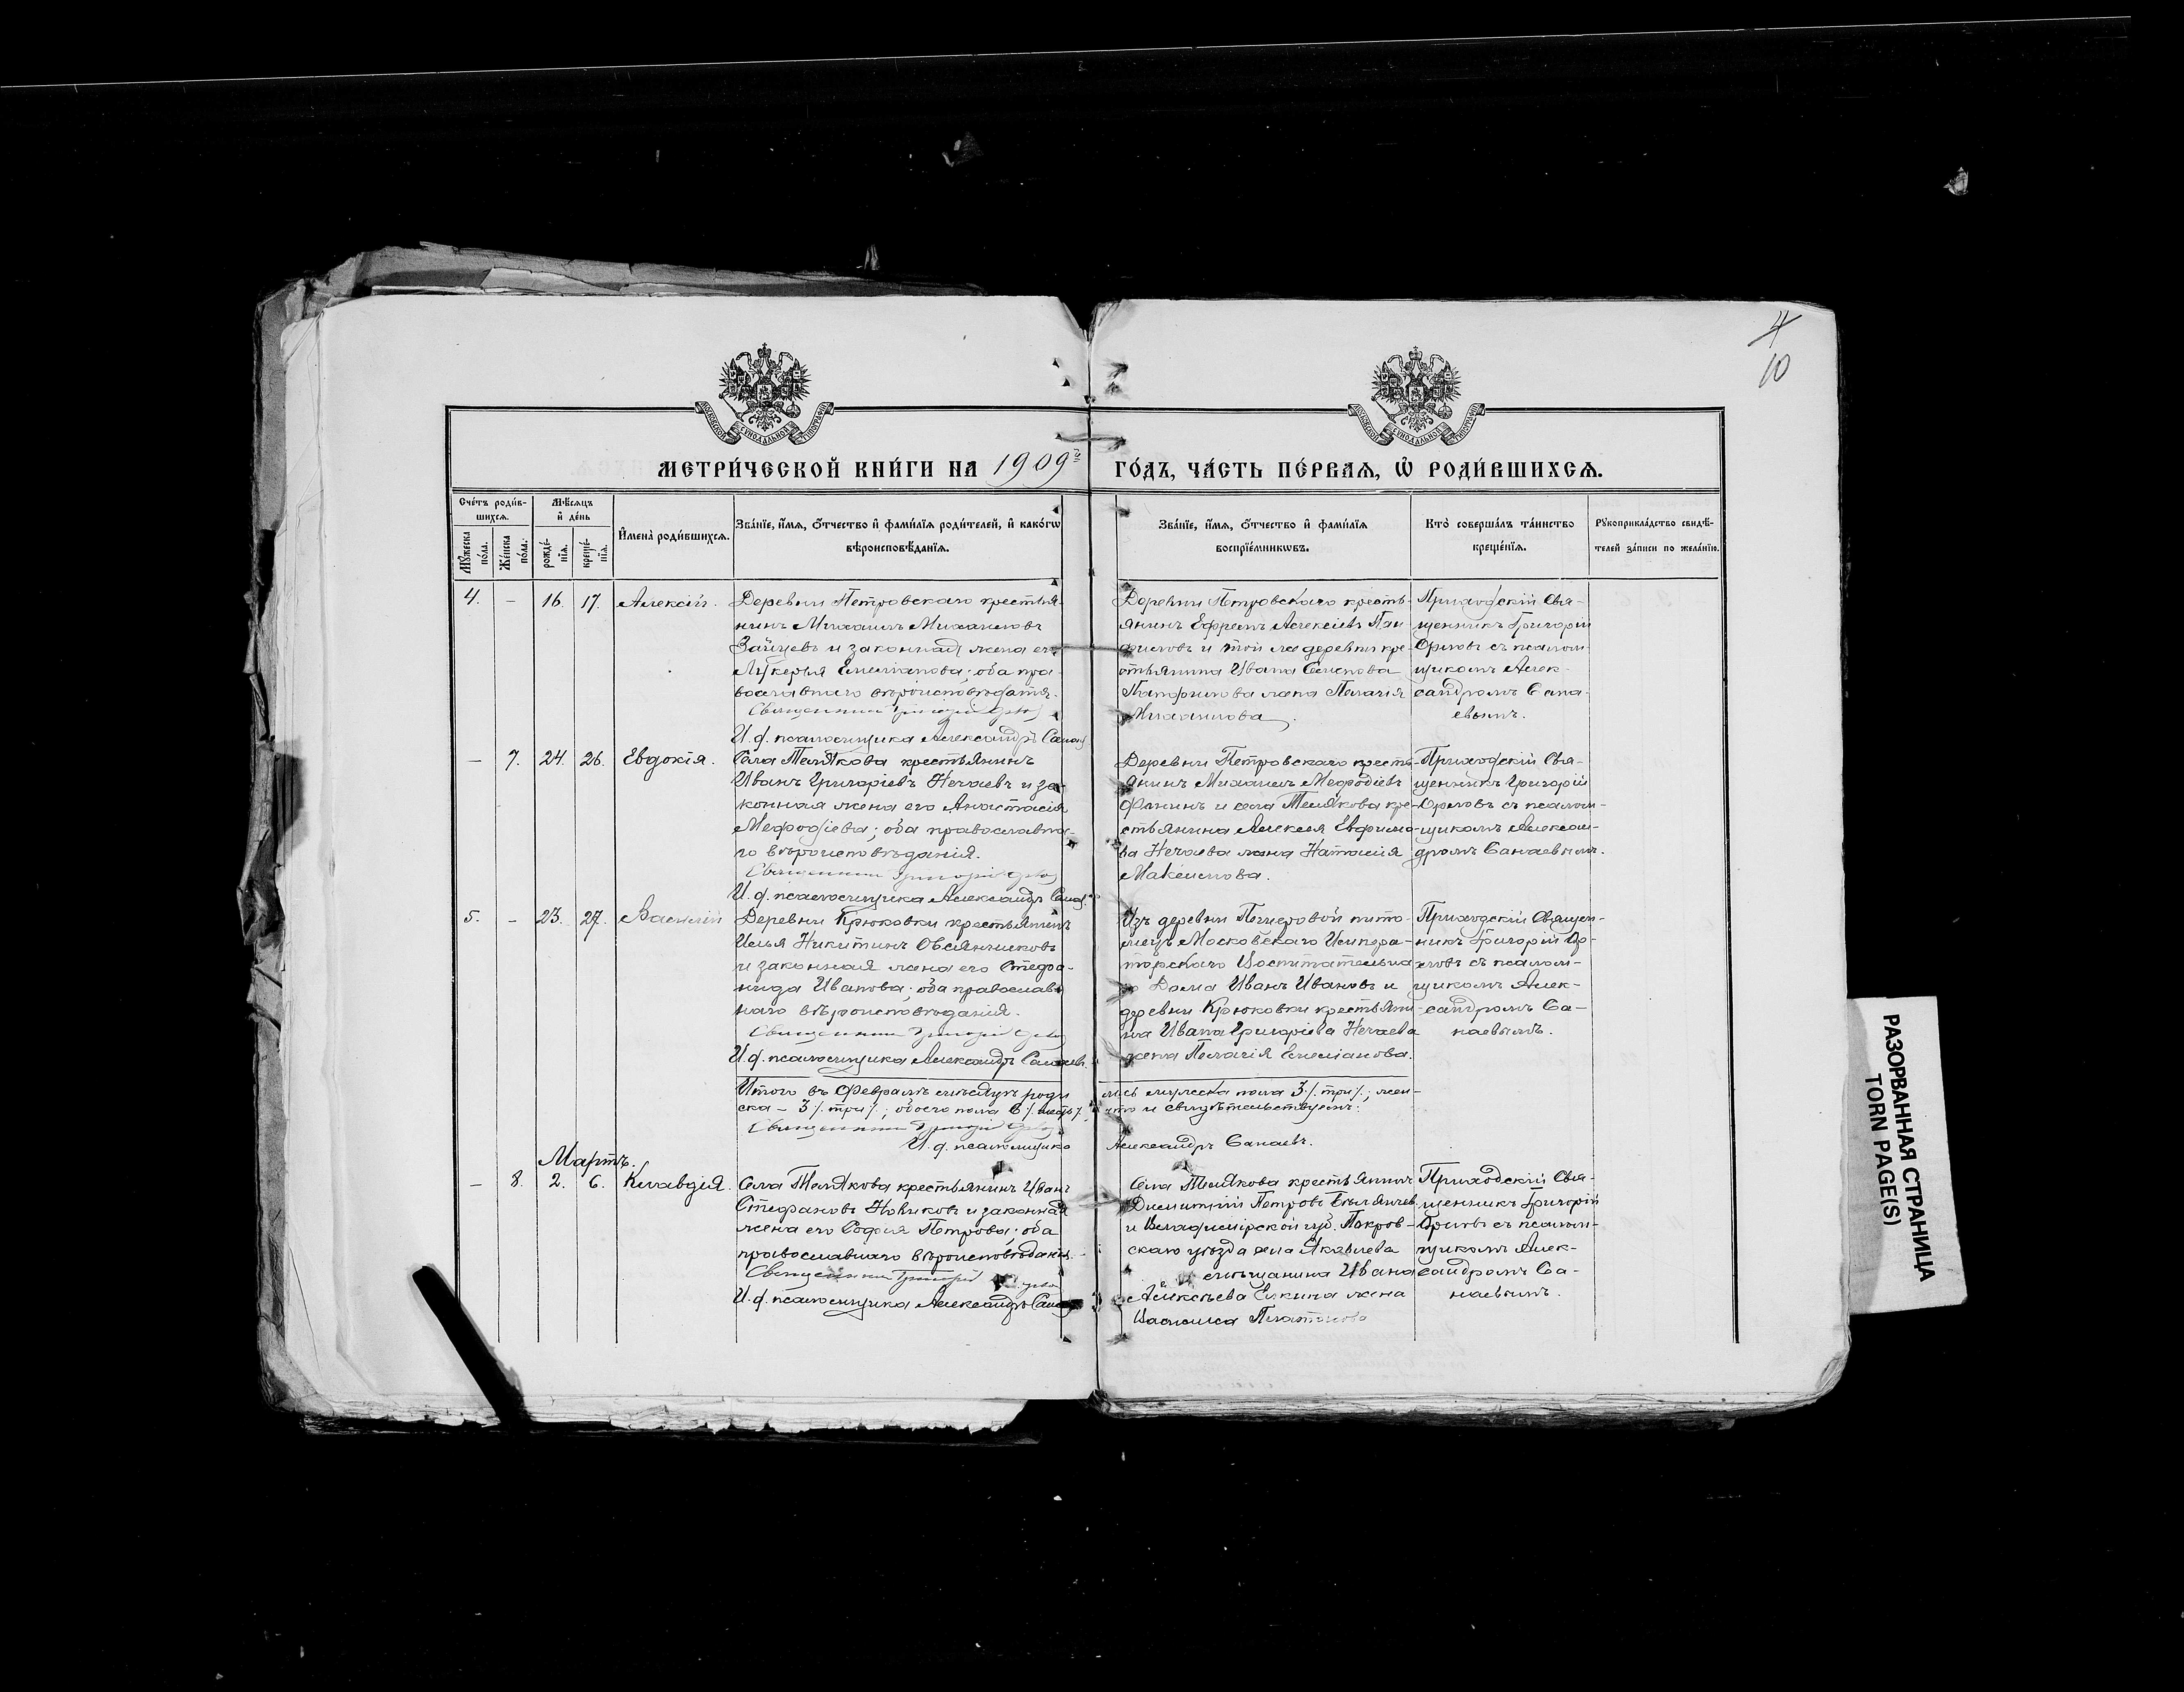 4
10
МОСКОВСКОЙ СУНОДАЛЬНОЙ ТИПОГРАФІИ
МОСКОВСКОЙ СУНОДАЛЬНОЙ ТИПОГРАФІИ
МЕТРИ́ЧЕСКОЙ КНИ́ГИ НА 1909 й ГО́ДЪ, ЧА́СТЬ ПЕ́РВАѦ, Ѿ РОДИ́ВШИХСѦ.
Сче́тъ роди́в-
шихсѧ.
Мꙋ́жеска по́ла.
Же́нска по́ла.
Мѣ́сѧцъ
и҆ де́нь
рожде́-
нїѧ.
креще́-
нїѧ.
И҆мена̀ роди́вшихсѧ.
Зва́нїе, и҆́мѧ, ѻ҆́тчество и҆ фами́лїѧ роди́телей, и҆ како́гѡ
вѣроисповѣ́данїѧ.
Зва́нїе, и҆́мѧ, ѻ҆́тчество и҆ фами́лїѧ
воспрїе́мникѡвъ.
Кто̀ соверша́лъ та́инство
креще́нїѧ.
Рꙋкоприкла́дство свидѣ́-
телей за́писи по жела́нїю.
4. – 16. 17. Алексій.
Деревни Петровскаго крестья-
нинъ Михаилъ Михаиловъ
Зайцевъ и законная жена его
Лукерья Емеліанова; оба пра-
вославнаго вѣроисповѣданія.
Священникъ Григорій Орловъ
И. д. псаломщика Александръ Санаевъ
Деревни Петровскаго кресть-
янинъ Ефремъ Алексіевъ Пан
филовъ и той же деревни кре-
стьянина Ивана Семенова
Панфилова жена Пелагія
Михаилова.
Приходскій Свя-
щенникъ Григорій
Орловъ съ псалом-
щикомъ Алек-
сандромъ Сана-
евымъ.
– 7. 24. 26. Евдокія.
Села Телякова крестьянинъ
Иванъ Григоріевъ Нечаевъ и за-
конная жена его Анастасія
Мефодіева; оба православна-
го вѣроисповѣданія.
Священникъ Григорій Орловъ
И. д. псаломщика Александръ Санаевъ
Деревни Петровскаго кресть-
янинъ Михаилъ Мефодіевъ
и села Телякова кре-
стьянина Алексея Евфимо-
ва Нечаева жена Наталія
Максимова.
Приходскій Свя-
щенникъ Григорій
Орловъ съ псалом-
щикомъ Алексан-
дромъ Санаевымъ.
5. – 23. 27. Василій
Деревни Крюковки крестьянинъ
Илья Никитинъ Овсянниковъ
и законная жена его Стефа-
нида Иванова; оба православ
наго вѣроисповѣданія.
Священникъ Григорій Орловъ
И. д. псаломщика Александръ Санаевъ.
Изъ деревни пито-
мецъ Московскаго Импера-
торскаго Воспитательна
го Дома Иванъ Ивановъ и
деревни Крюковки крестьяни
на Ивана Григоріева Нечаева
жена Пелагія Емеліанова.
Приходскій Священ-
никъ Григорій Ор-
ловъ съ псалом-
щикомъ Алек-
сандромъ Са-
наевымъ.
Итого въ Февралѣ мѣсяцѣ роди лись мужеска пола 3 /. три /.; жен-
ска – 3 /. три /.; обоего пола 6 /. шесть /. что и свидѣтельствуемъ:
Священникъ Григорій Орловъ
И. д. псаломщика Александръ Санаевъ.
Мартъ.
– 8. 2. 6. Клавдія.
Села Телякова крестьянинъ Иванъ
Стефановъ Новиковъ и законная
жена его Софія Петрова; оба
православнаго вѣроисповѣданія.
Священникъ Григорій Орловъ
И. д. псаломщика Александръ Санаевъ
Села Телякова крестьянинъ
Димитрій Петровъ
и Владимірской губ. Покров-
скаго уѣзда села Яковлева
мѣщанина Ивана
Алексѣева Елкина жена
Василиса Платонова
Приходскій Свя-
щенникъ Григорій
Орловъ съ псалом-
щикомъ Алек-
сандромъ Са-
наевымъ.
РАЗОРВАННАЯ СТРАНИЦА
TORN PAGE(S)